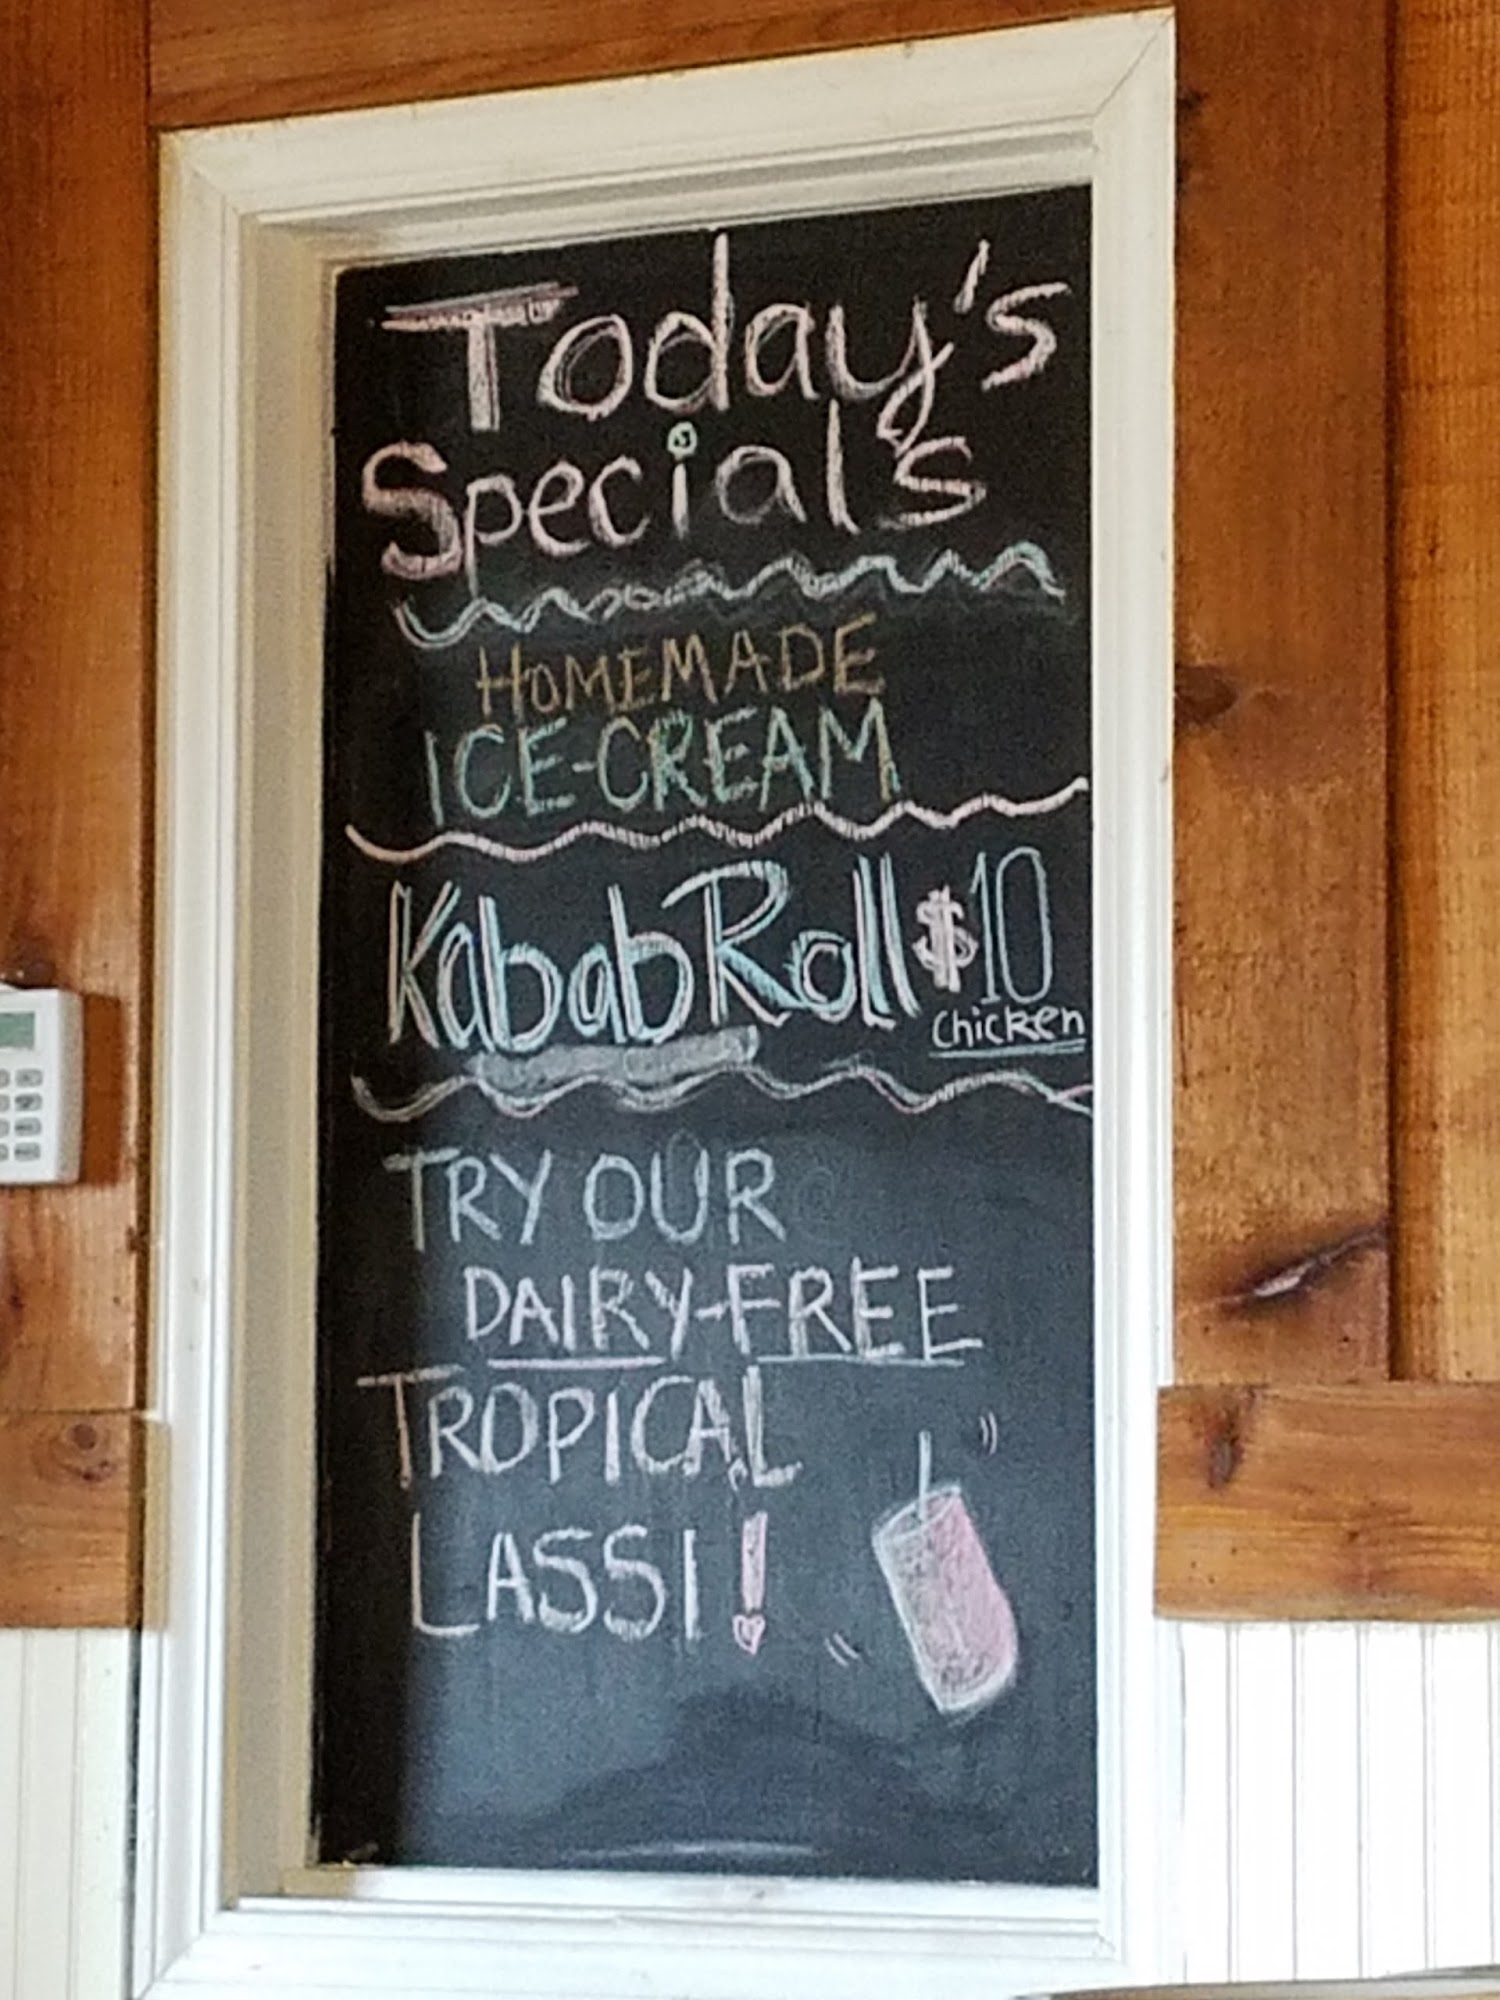 Today's
Specials
HOMEMADE
ICE-CREAM
Kabab Roll $10
chicken
TRY OUR
DAIRY-FREE
TROPICAL
LASSI!